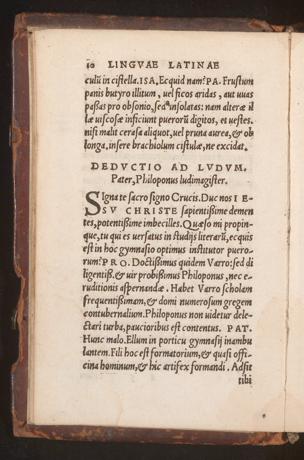 10 LINGVAE LATINAE
culũ in cistella. ISA. Ecquid nam? PA. Frustum
panis butyro illitum, uel ficos aridas, aut uuas
passas pro obsonio, sed insolatas: nam alteræ il
læ uiscosæ inficiunt puerorũ digitos, et uestes.
nisi malit cerasa aliquot, uel pruna aurea, & ob
longa. insere brachiolum cistulæ, ne excidat.
DEDVCTIO AD LVDVM.
Pater, Philoponus ludimagister.
SIgna te sacro signo Crucis. Duc nos IE-
SV CHRISTE sapientißime demen
tes, potentißime imbecilles. Quæso mi propin-
que, tu qui es uersatus in studijs literarũ, ecquis
est in hoc gymnasio optimus institutor puero-
rum? PRO. Doctißimus quidem Varro: sed di
ligentiß. & uir probißimus Philoponus, nec e-
ruditionis aspernandæ. Habet Varro scholam
frequentißimam, & domi numerosum gregem
contubernalium. Philoponus non uidetur dele-
ctari turba, paucioribus est contentus. PAT.
Hunc malo. Ellum in porticu gymnasij inambu
lantem. Fili hoc est formatorium, & quasi offi-
cina hominum, & hic artifex formandi. Adsit
tibi